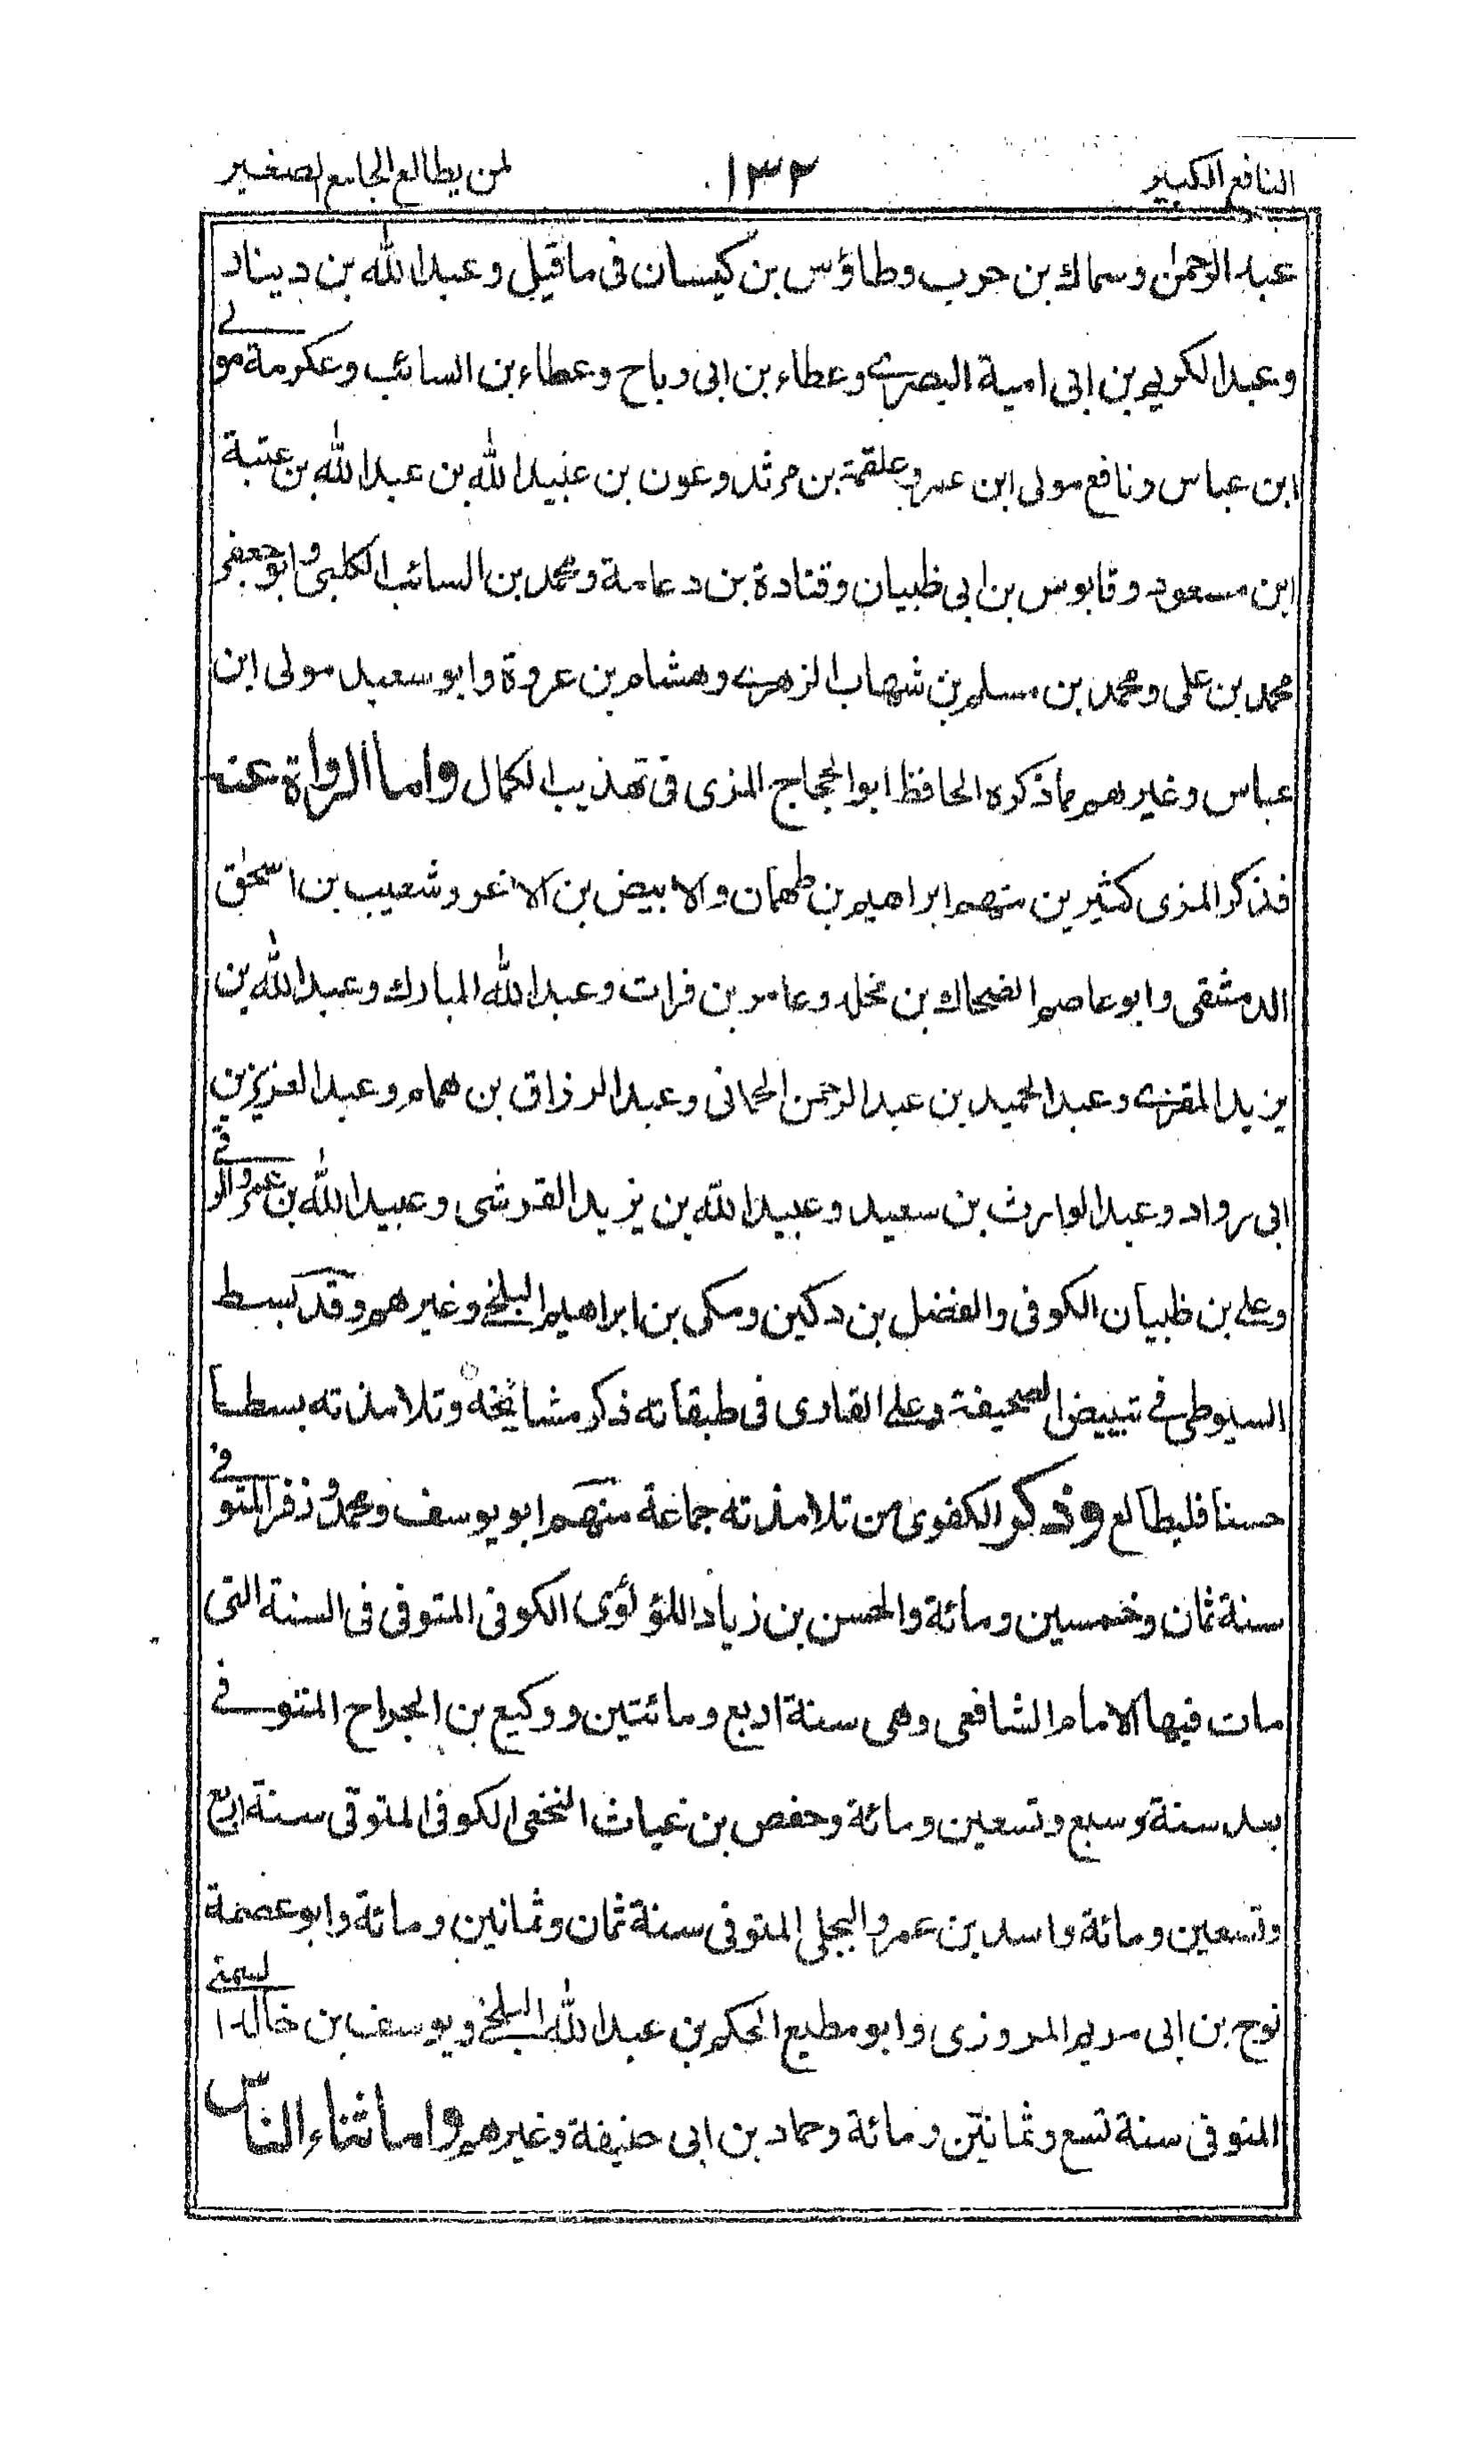 النافع الكبير ١٣٢ لمن يطالع الجامع الصغير
عبد الرحمٰن وسماك بن حرب وطاؤس بن كيسان فى ما قيل وعبد الله بن دينار
وعبد الكريم بن ابى امية البصرى وعطاء بن ابى رباح وعطاء بن السائب وعكرمة مولى
ابن عباس ونافع مولى ابن عمر وعلقمة بن مرثد وعون بن عبيد الله بن عبد الله بن عتبة
ابن مسعود وقابوس بن ابى ظبيان وقتادة بن دعامة ومحمد بن السائب الكلبى وابو جعفر
محمد بن على ومحمد بن مسلم بن شهاب الزهرى وهشام بن عروة وابو سعيد مولى ابن
عباس وغيرهم مما ذكره الحافظ ابو الحجاج المزى فى تهذيب الكمال واما الرواة عنه
فذكر المزى كثيرين منهم ابراهيم بن طهمان والابيض بن الاغر وشعيب بن اسحٰق
الدمشقى وابو عاصم الضحاك بن مخلد وعامر بن فرات وعبد الله المبارك وعبد الله بن
يزيد المقرى وعبد الحميد بن عبد الرحمن الحمانى وعبد الرزاق بن همام وعبد العزيز بن
ابى رواد وعبد الوارث بن سعيد وعبيد الله بن يزيد القرشى وعبيد الله بن عمرو الرقى
وعلى بن ظبيان الكوفى والفضل بن دكين ومكى بن ابراهيم البلخى وغيرهم وقد بسط
السيوطى فى تبييض الصحيفة وعلى القارى فى طبقاته ذكر مشايخه وتلامذته بسطا
حسنا فليطالع وذكر الكفوى من تلامذته جماعة منهم ابو يوسف ومحمد وزفر المتوفى
سنة ثمان وخمسين ومائة والحسن بن زياد اللؤلؤى الكوفى المتوفى فى السنة التى
مات فيها الامام الشافعى وهى سنة اربع ومائتين ووكيع بن الجراح المتوفى
بعد سنة سبع وتسعين ومائة وحفص بن غياث النخعى الكوفى المتوفى سنة اربع
وتسعين ومائة واسد بن عمرو البجلى المتوفى سنة ثمان وثمانين ومائة وابو عصمة
نوح بن ابى مريم المروزى وابو مطيع الحكم بن عبد الله البلخى ويوسف بن خالد السمتى
المتوفى سنة تسع وثمانين ومائة وحماد بن ابى حنيفة وغيرهم واما ثناء الناس